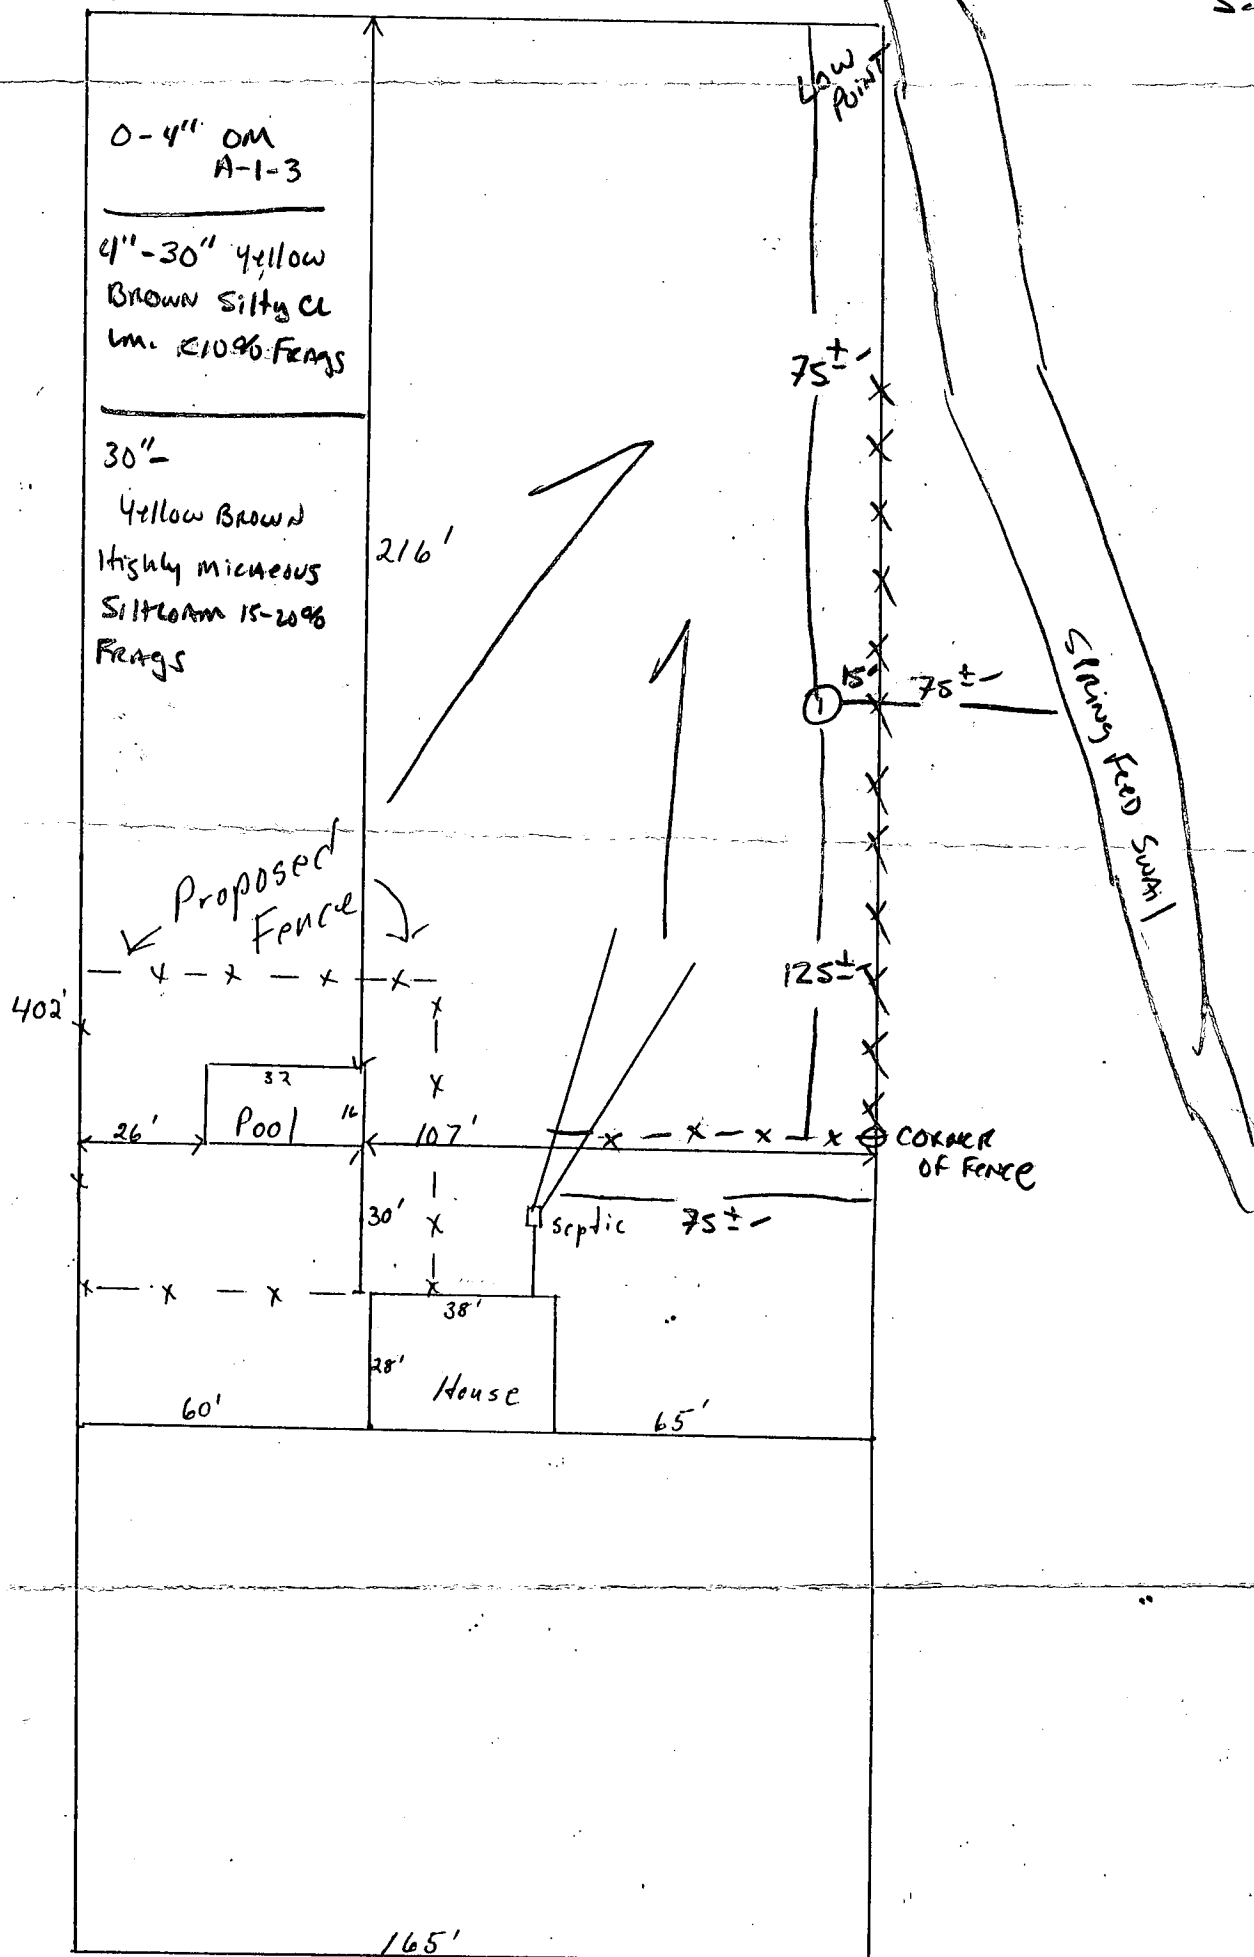 LOW
POINT
0-4" OM
A-1-3
4"-30" Yellow
BROWN Silty CL
Lm. <10% FRAgs
30"-
Yellow BROWN
Highly micaeous
SiltLoAm 15-20%
FRAgs
216'
75±-
15'
75±-
SPRING FEED SWAil
Proposed
Fence
402'
125±-
32
Pool
16
26'
107'
CORNER
OF FENCE
30'
septic
75±-
38'
28'
House
60'
65'
165'